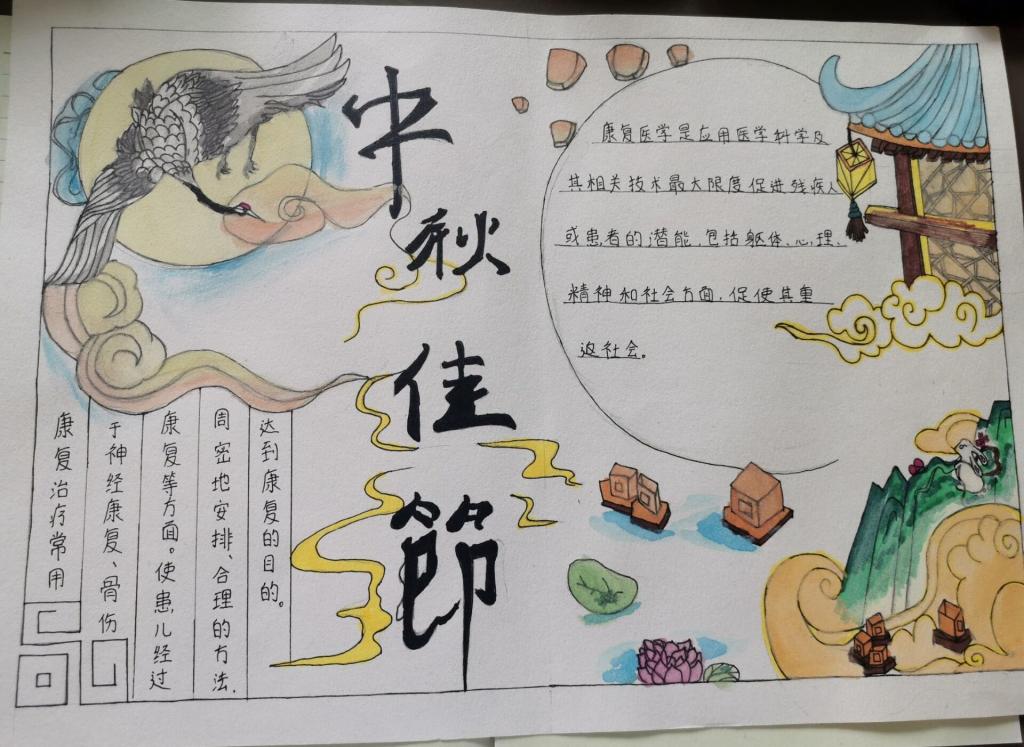 中秋佳節
康复医学是应用医学科学及
其相关技术最大限度促进残疾人
或患者的潜能,包括躯体、心理、
精神和社会方面,促使其重
返社会。
康复治疗常用
于神经康复、骨伤
康复等方面。使患儿经过
周密地安排、合理的方法,
达到康复的目的。